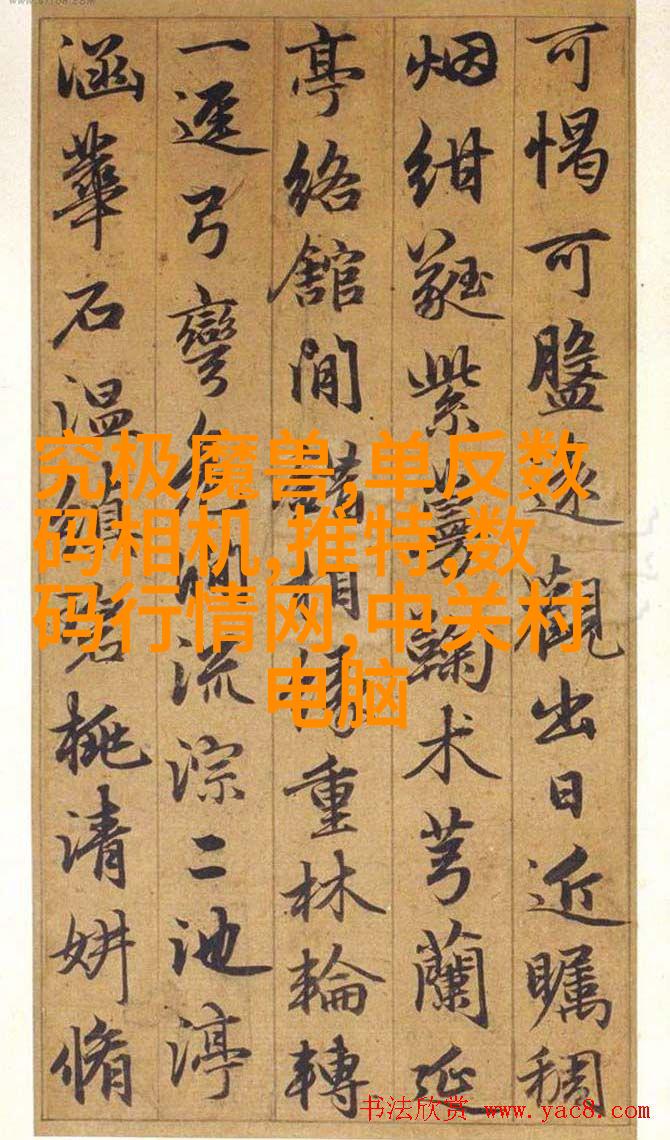 可愒可盤觀出日近矚稠
烟紺蕤紫蔓鞠术芎蘭延
亭絡館閒相重林輪轉
一逕弓彎行流淙二池渟
涵華石温桃清妍脩
究极魔兽,单反数
码相机,推特,数
码行情网,中关村
电脑
书法欣赏 www.yac8.com